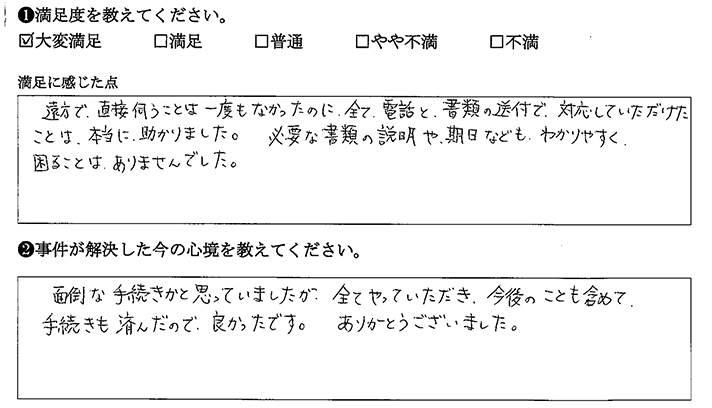 ❶満足度を教えてください。
☑大変満足 ☐満足 ☐普通 ☐やや不満 ☐不満
満足に感じた点
遠方で、直接伺うことは一度もなかったのに、全て、電話と、書類の送付で、対応していただけた
ことは、本当に、助かりました。 必要な書類の説明や、期日なども、わかりやすく、
困ることは、ありませんでした。
❷事件が解決した今の心境を教えてください。
面倒な手続きかと思っていましたが、全てやっていただき、今後のことも含めて、
手続きも済んだので、良かったです。 ありがとうございました。